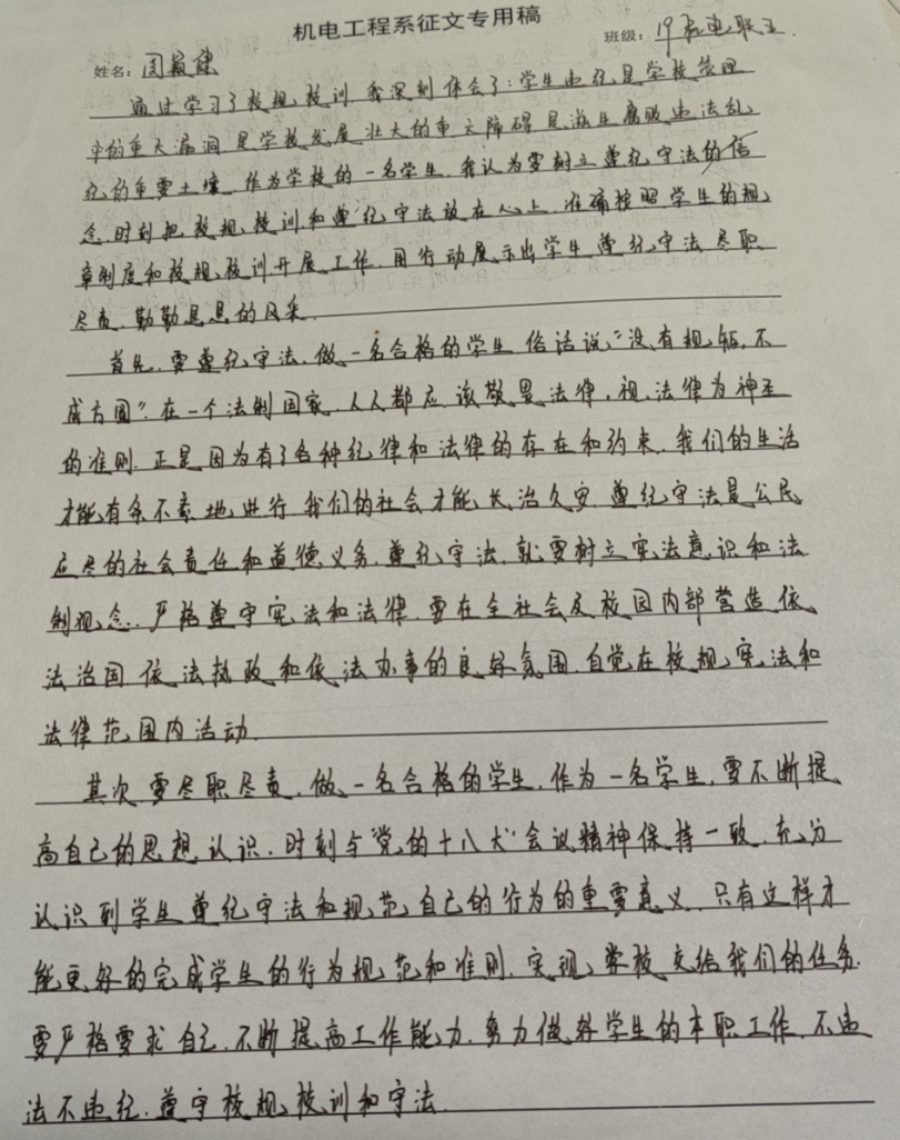 机电工程系征文专用稿
班级：19机电联王
姓名：周颖康
通过学习了校规、校训，我深刻体会了：学生违纪是学校管理
中的重大漏洞，是学校发展壮大的重大障碍，是滋生腐败违法乱
纪的重要土壤。作为学校的一名学生，我认为要树立遵纪守法的信
念，时刻把校规、校训和遵纪守法放在心上，准确按照学生的规
章制度和校规、校训开展工作，用行动展示出学生遵纪守法、尽职
尽责、勤勤恳恳的风采。
首先，要遵纪守法，做一名合格的学生。俗话说："没有规矩，不
成方圆"。在一个法制国家，人人都应该敬畏法律，视法律为神圣
的准则。正是因为有了各种纪律和法律的存在和约束，我们的生活
才能有条不紊地进行，我们的社会才能长治久安。遵纪守法是公民
应尽的社会责任和道德义务。遵纪守法，就要树立宪法意识和法
制观念。严格遵守宪法和法律，要在全社会及校园内部营造依
法治国、依法执政和依法办事的良好氛围，自觉在校规、宪法和
法律范围内活动。
其次，要尽职尽责，做一名合格的学生。作为一名学生，要不断提
高自己的思想认识，时刻与"党的十八大"会议精神保持一致，充分
认识到学生遵纪守法和规范自己的行为的重要意义，只有这样才
能更好的完成学生的行为规范和准则，实现学校交给我们的任务。
要严格要求自己，不断提高工作能力，努力做好学生的本职工作，不违
法不违纪，遵守校规、校训和守法。